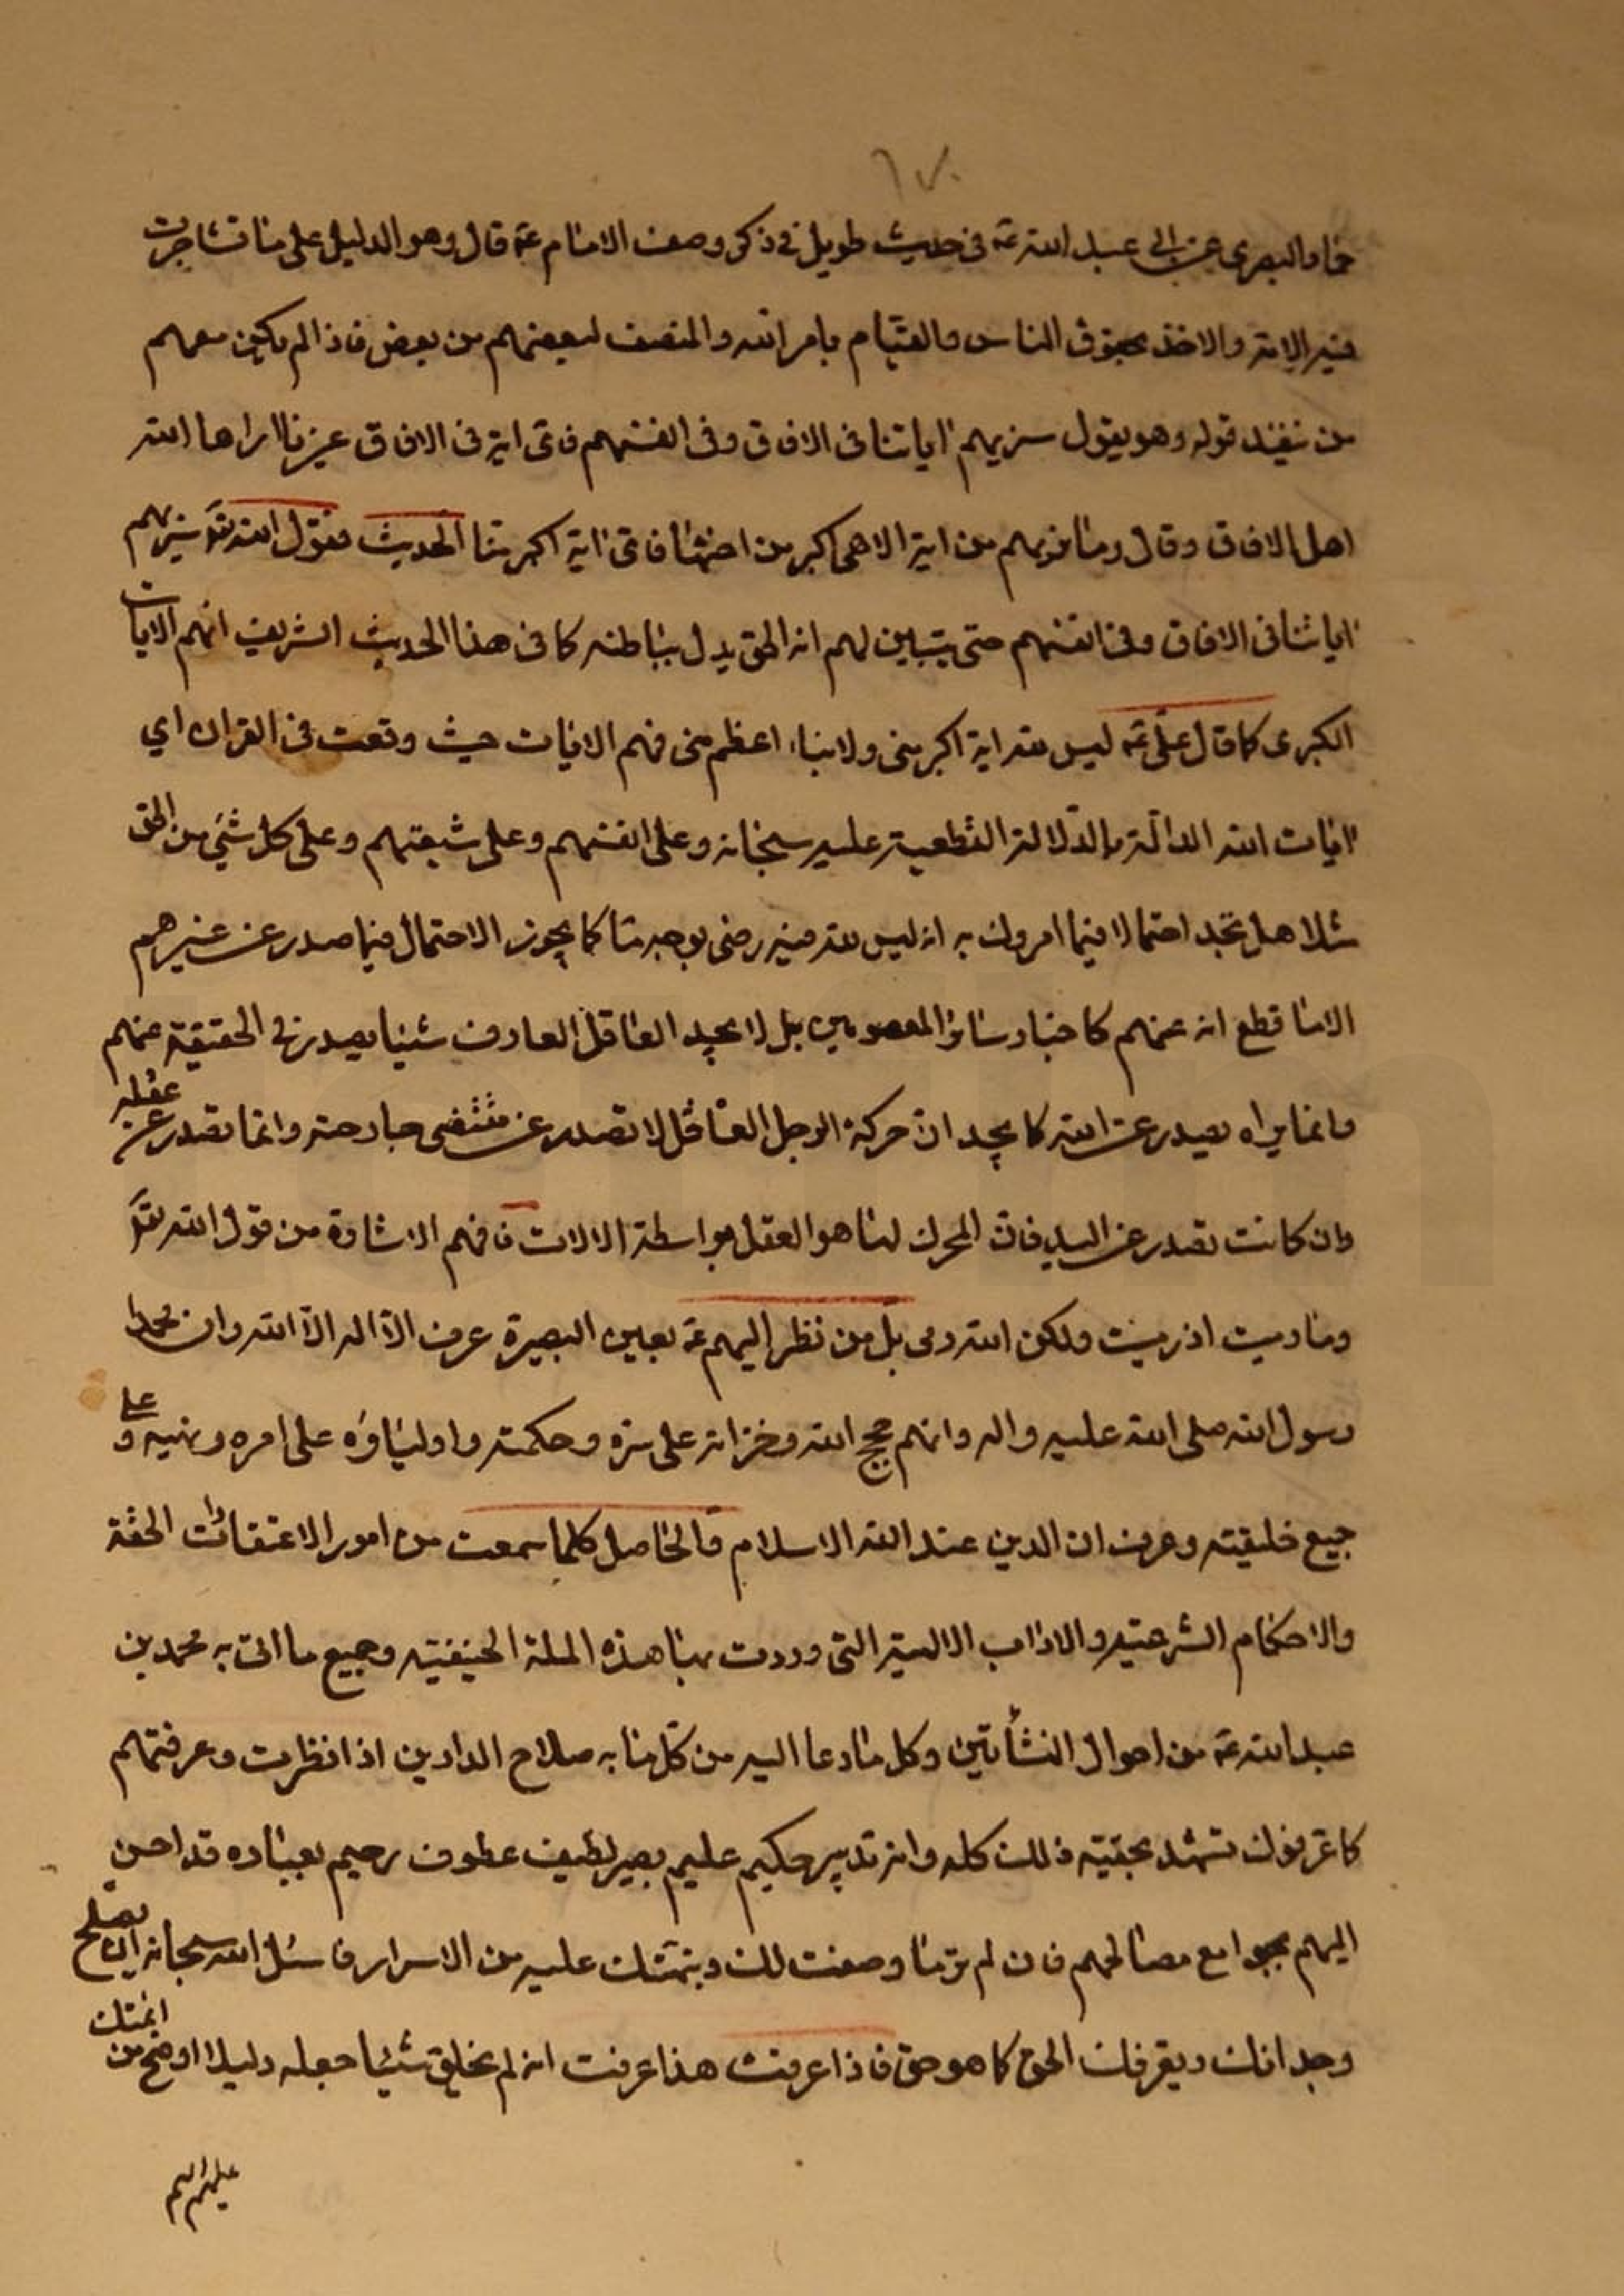 ١٧٠
حماد البصرى عن ابى عبد الله ع‍ فى حديث طويل فى ذكر وصف الامام ع‍ قال وهو الدليل على ما تشاجرت
فيه الامة والاخذ بحقوق الناس والقيام بامر الله والمنصف لبعضهم من بعض فاذا لم يكن معهم
من ينفذ قوله وهو يقول سنريهم اياتنا فى الافاق وفى انفسهم فاى اية فى الافاق غيرنا اراها الله
اهل الافاق وقال وما نريهم من اية الا هى اكبر من اختها فاى اية اكبر منا الحديث فقول الله تع‍ سنريهم
اياتنا فى الافاق وفى انفسهم حتى يتبين لهم انه الحق يدل بباطنه كما فى هذا الحديث الشريف انهم الايات
الكبرى كما قال على ع‍ ليس لله اية اكبر منى ولا نباء اعظم منى فهم الايات حيث وقعت فى القران اي
ايات الله الدالة بالدلالة القطعية عليه سبحانه وعلى انفسهم وعلى شيعتهم وعلى كل شئ من الحق
مثلا هل تجد احتمالا فيما امروك به انه ليس لله فيه رضى بوجه ما كما يجوز الاحتمال فيما صدر عن غيرهم
الا ما قطع انه عنهم كاخبار سائر المعصومين بل لا يجد العاقل العارف شيئا يصدر فى الحقيقة عنهم
وانما يراه يصدر عن الله كما يجد ان حركة الرجل العاقل لا تصدر عن مقتضى جارحته وانما تصدر عن عقله
وان كانت تصدر عن اليد فان المحرك لها هو العقل بواسطة الالات فافهم الاشارة من قول الله تع‍
وما رميت اذ رميت ولكن الله رمى بل من نظر اليهم ع‍ بعين البصيرة عرف الا اله الا الله وان محمدا
رسول الله صلى الله عليه واله وانهم حجج الله وخزانه على سره وحكمته واولياؤه على امره ونهيه وعلى
جميع خليقته وعرف ان الدين عند الله الاسلام فالحاصل كلما سمعت من امور الاعتقادات الحقة
والاحكام الشرعية والاداب الالهية التى وردت بها هذه الملة الحنيفية وجميع ما اتى به محمد بن
عبد الله ع‍ من احوال النشأتين وكل ما دعا اليه من كل ما به صلاح الدارين اذا نظرت وعرفتهم
كما عرفوك تشهد بحقية ذلك كله وانه تدبير حكيم عليم بصير لطيف عطوف رحيم بعباده قد احسن
اليهم بجوامع مصالحهم فان لم تر ما وصفت لك ونبهتك عليه من الاسرار فاسئل الله سبحانه ان يصلح
وجدانك ويعرفك الحق كما هو حق فاذا عرفت هذا عرفت انه لم يخلق شيئا جعله دليلا اوضح من ائمتك
عليهم السم